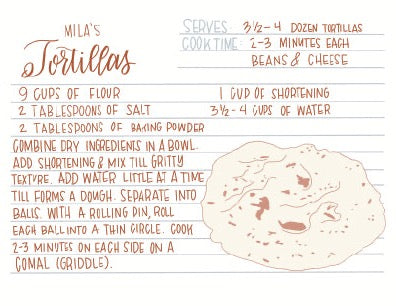 MILA'S
Tortillas
SERVES 3½-4 DOZEN TORTILLAS
COOK TIME: 2-3 MINUTES EACH
BEANS & CHEESE
9 CUPS OF FLOUR
1 CUP OF SHORTENING
2 TABLESPOONS OF SALT
3½-4 CUPS OF WATER
2 TABLESPOONS OF BAKING POWDER
COMBINE DRY INGREDIENTS IN A BOWL.
ADD SHORTENING & MIX TILL GRITTY
TEXTURE. ADD WATER LITTLE AT A TIME
TILL FORMS A DOUGH. SEPARATE INTO
BALLS. WITH A ROLLING PIN, ROLL
EACH BALL INTO A THIN CIRCLE. COOK
2-3 MINUTES ON EACH SIDE ON A
COMAL (GRIDDLE).